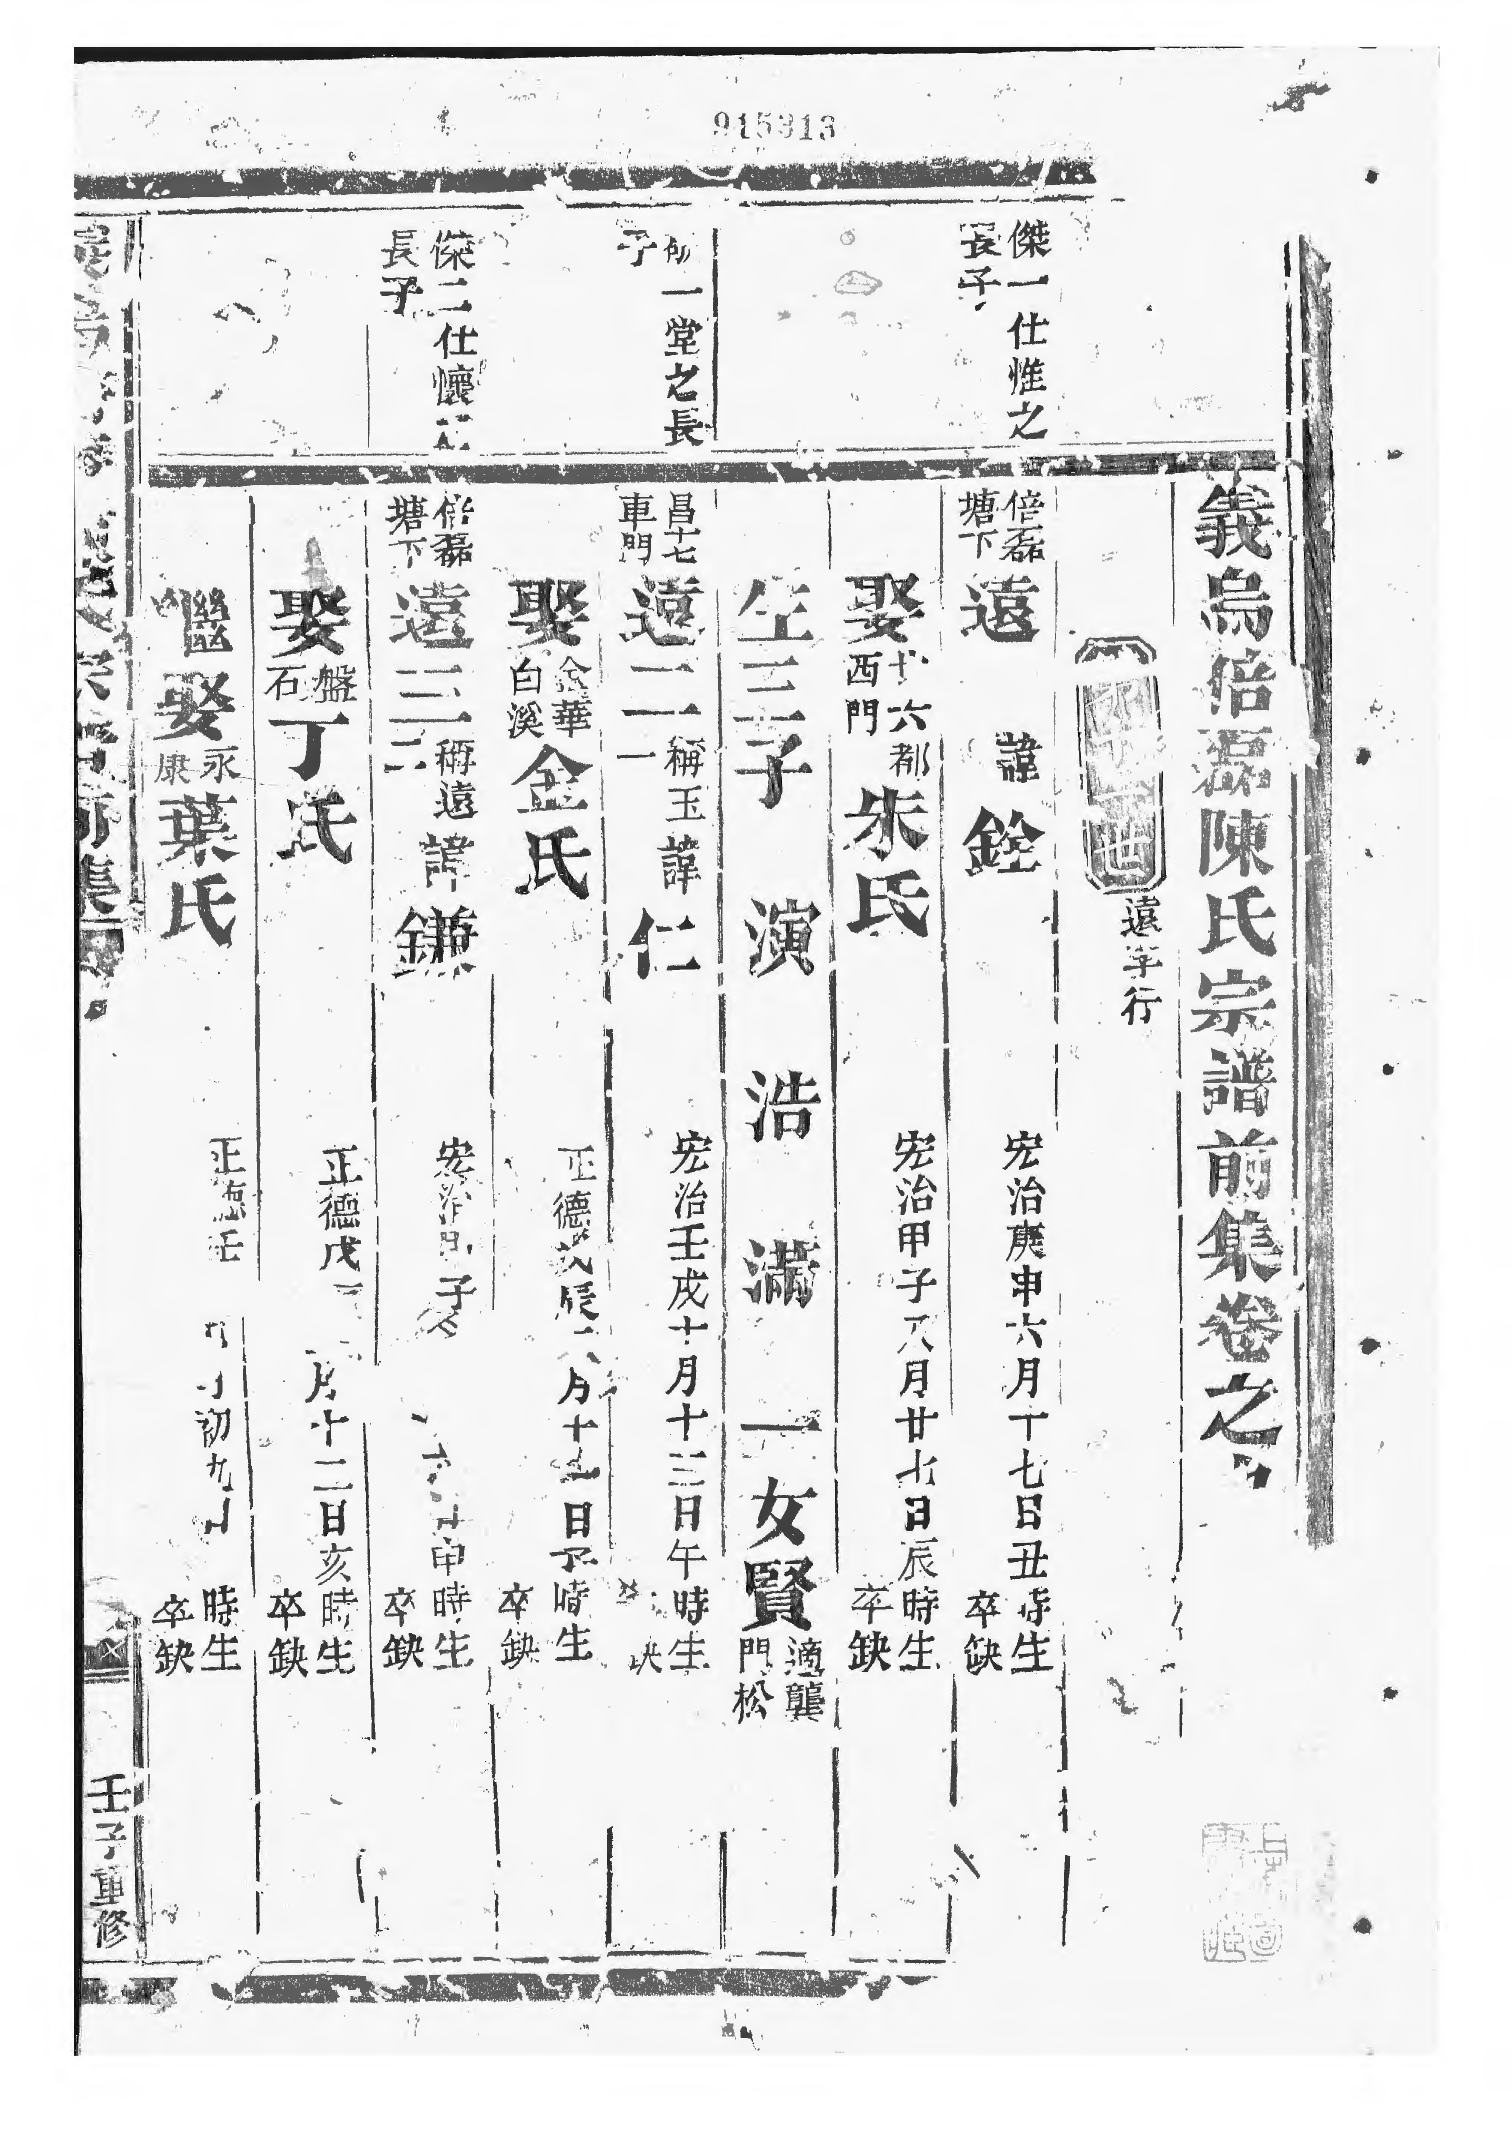 915313
義烏倍磊陳氏宗譜前集卷之
世
遠字行
傑一仕惟之
長子
倍磊
塘下
遠 諱銓
宏治庚申六月十七日丑時生
卒缺
娶
十六都
西門
朱氏
宏治甲子八月廿七日辰時生
卒缺
生三子 演 浩 滿 一女賢
適龔
門松
一堂之長
子
昌七
車門
遠二
一
稱玉諱
仁
宏治壬戌十月十三日午時生
缺
娶
金華
白溪
金氏
正德戊辰六月十五日子時生
卒缺
傑二仕懷
長子
倍磊
塘下
遠三
二
稱遠諱
鎌
宏治 子
申時生
卒缺
娶
盤
石
丁氏
正德戊
月十二日亥時生
卒缺
繼娶
永
康
葉氏
正德壬
初九日
時生
卒缺
集
壬子重修